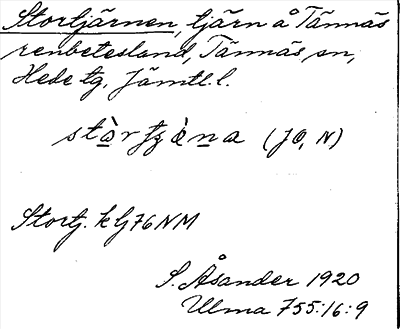 Stortjärnen, tjärn å Tännäs
renbetesland, Tännäs sn,
Hede tg, Jämtl. l.
(JO, N)
Stortj. k lj 76 NM
S. Åsander 1920
Ulma 755:16:9